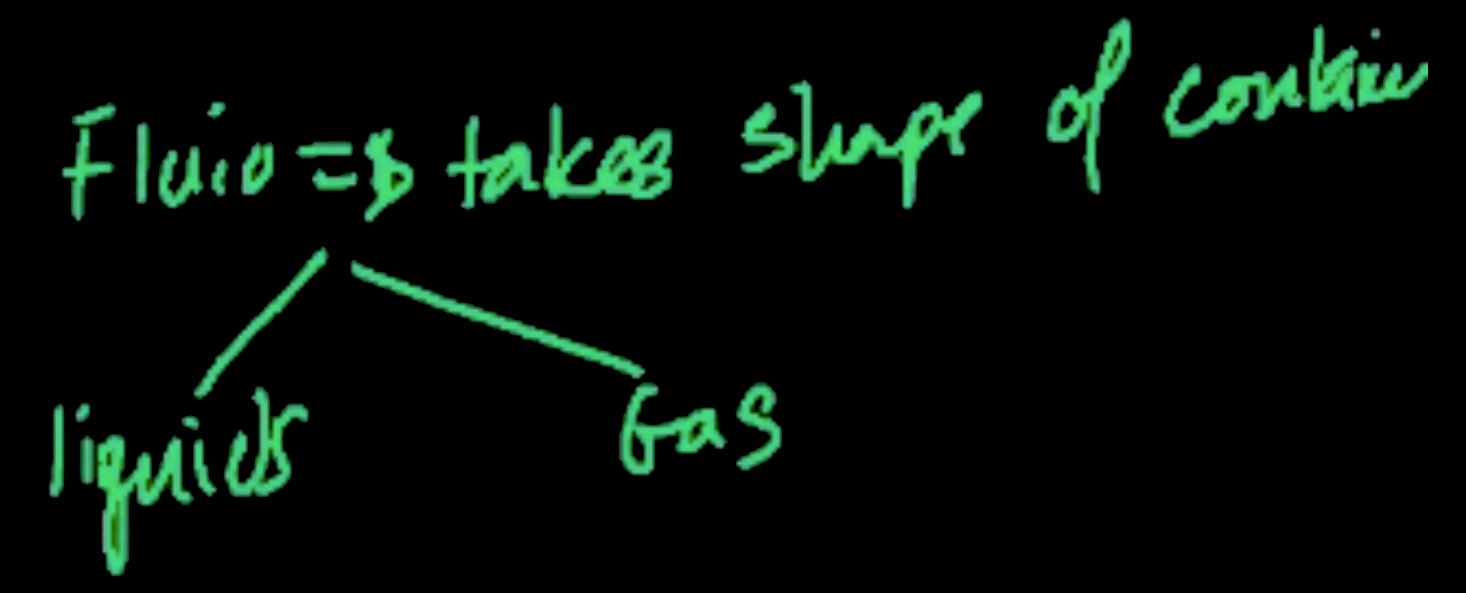 Fluid => takes shape of contain
liquids Gas